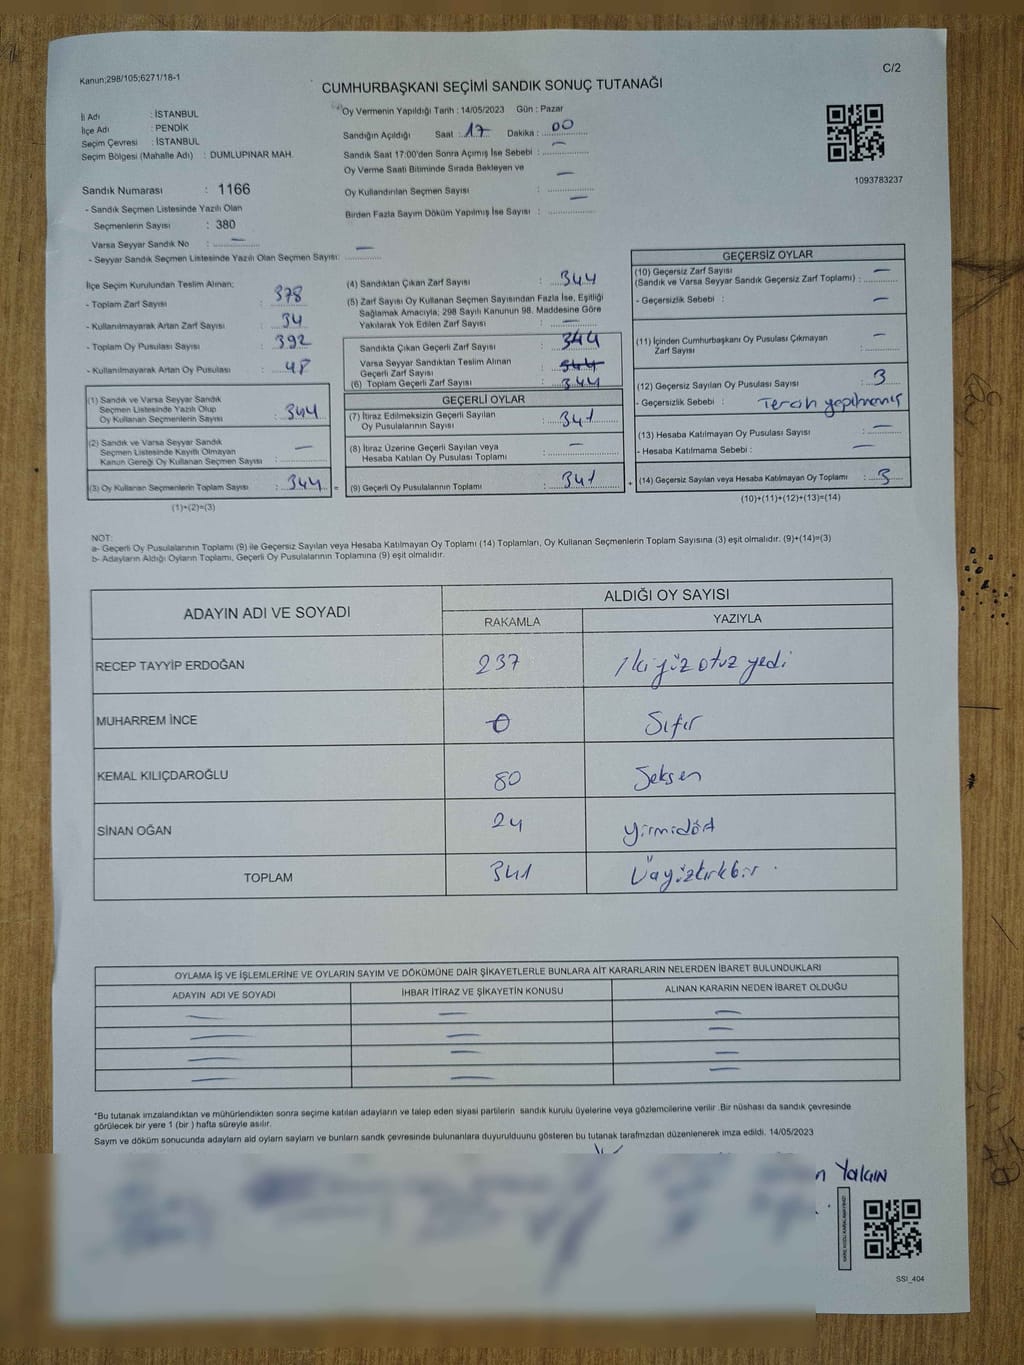 Kanun;298/105;6271/18-1
C/2
CUMHURBAŞKANI SEÇİMİ SANDIK SONUÇ TUTANAĞI
İl Adı : İSTANBUL
İlçe Adı : PENDİK
Seçim Çevresi : İSTANBUL
Seçim Bölgesi (Mahalle Adı) : DUMLUPINAR MAH.
Oy Vermenin Yapıldığı Tarih : 14/05/2023 Gün : Pazar
Sandığın Açıldığı Saat : 17 Dakika : 00
Sandık Saat 17:00'den Sonra Açımış İse Sebebi : –
Oy Verme Saati Bitiminde Sırada Bekleyen ve
Oy Kullandırılan Seçmen Sayısı : –
Birden Fazla Sayım Döküm Yapılmış İse Sayısı : –
1093783237
Sandık Numarası : 1166
- Sandık Seçmen Listesinde Yazılı Olan
Seçmenlerin Sayısı : 380
Varsa Seyyar Sandık No : –
- Seyyar Sandık Seçmen Listesinde Yazılı Olan Seçmen Sayısı: –
İlçe Seçim Kurulundan Teslim Alınan;
- Toplam Zarf Sayısı : 378
- Kullanılmayarak Artan Zarf Sayısı : 34
- Toplam Oy Pusulası Sayısı : 392
- Kullanılmayarak Artan Oy Pusulası : 48
(1) Sandık ve Varsa Seyyar Sandık
Seçmen Listesinde Yazılı Olup
Oy Kullanan Seçmenlerin Sayısı : 344
(2) Sandık ve Varsa Seyyar Sandık
Seçmen Listesinde Kayıtlı Olmayan
Kanun Gereği Oy Kullanan Seçmen Sayısı : –
(3) Oy Kullanan Seçmenlerin Toplam Sayısı : 344 =
(1)+(2)=(3)
(4) Sandıktan Çıkan Zarf Sayısı : 344
(5) Zarf Sayısı Oy Kullanan Seçmen Sayısından Fazla İse, Eşitliği
Sağlamak Amacıyla; 298 Sayılı Kanunun 98. Maddesine Göre
Yakılarak Yok Edilen Zarf Sayısı : –
Sandıkta Çıkan Geçerli Zarf Sayısı : 344
Varsa Seyyar Sandıktan Teslim Alınan
Geçerli Zarf Sayısı :
(6) Toplam Geçerli Zarf Sayısı : 344
GEÇERLİ OYLAR
(7) İtiraz Edilmeksizin Geçerli Sayılan
Oy Pusulalarının Sayısı : 341
(8) İtiraz Üzerine Geçerli Sayılan veya
Hesaba Katılan Oy Pusulası Toplamı : –
(9) Geçerli Oy Pusulalarının Toplamı : 341 +
GEÇERSİZ OYLAR
(10) Geçersiz Zarf Sayısı
(Sandık ve Varsa Seyyar Sandık Geçersiz Zarf Toplamı) : –
- Geçersizlik Sebebi : –
(11) İçinden Cumhurbaşkanı Oy Pusulası Çıkmayan
Zarf Sayısı : –
(12) Geçersiz Sayılan Oy Pusulası Sayısı : 3
- Geçersizlik Sebebi : Tercih yapılmamış
(13) Hesaba Katılmayan Oy Pusulası Sayısı : –
- Hesaba Katılmama Sebebi : –
(14) Geçersiz Sayılan veya Hesaba Katılmayan Oy Toplamı : 3
(10)+(11)+(12)+(13)=(14)
NOT:
a- Geçerli Oy Pusulalarının Toplamı (9) ile Geçersiz Sayılan veya Hesaba Katılmayan Oy Toplamı (14) Toplamları, Oy Kullanan Seçmenlerin Toplam Sayısına (3) eşit olmalıdır. (9)+(14)=(3)
b- Adayların Aldığı Oyların Toplamı, Geçerli Oy Pusulalarının Toplamına (9) eşit olmalıdır.
ADAYIN ADI VE SOYADI
ALDIĞI OY SAYISI
RAKAMLA YAZIYLA
RECEP TAYYİP ERDOĞAN 237 İkiyüz otuz yedi
MUHARREM İNCE 0 Sıfır
KEMAL KILIÇDAROĞLU 80 Seksen
SİNAN OĞAN 24 Yirmidört
TOPLAM 341 Üçyüzkırkbir.
OYLAMA İŞ VE İŞLEMLERİNE VE OYLARIN SAYIM VE DÖKÜMÜNE DAİR ŞİKAYETLERLE BUNLARA AİT KARARLARIN NELERDEN İBARET BULUNDUKLARI
ADAYIN ADI VE SOYADI İHBAR İTİRAZ VE ŞİKAYETİN KONUSU ALINAN KARARIN NEDEN İBARET OLDUĞU
– – –
– – –
– – –
– – –
*Bu tutanak imzalandıktan ve mühürlendikten sonra seçime katılan adayların ve talep eden siyasi partilerin sandık kurulu üyelerine veya gözlemcilerine verilir .Bir nüshası da sandık çevresinde
görülecek bir yere 1 (bir ) hafta süreyle asılır.
Sayım ve döküm sonucunda adayların ald oyların sayların ve bunların sandk çevresinde bulunanlara duyurulduunu gösteren bu tutanak tarafmzdan düzenlenerek imza edildi. 14/05/2023
n Yalçın
SSI_404